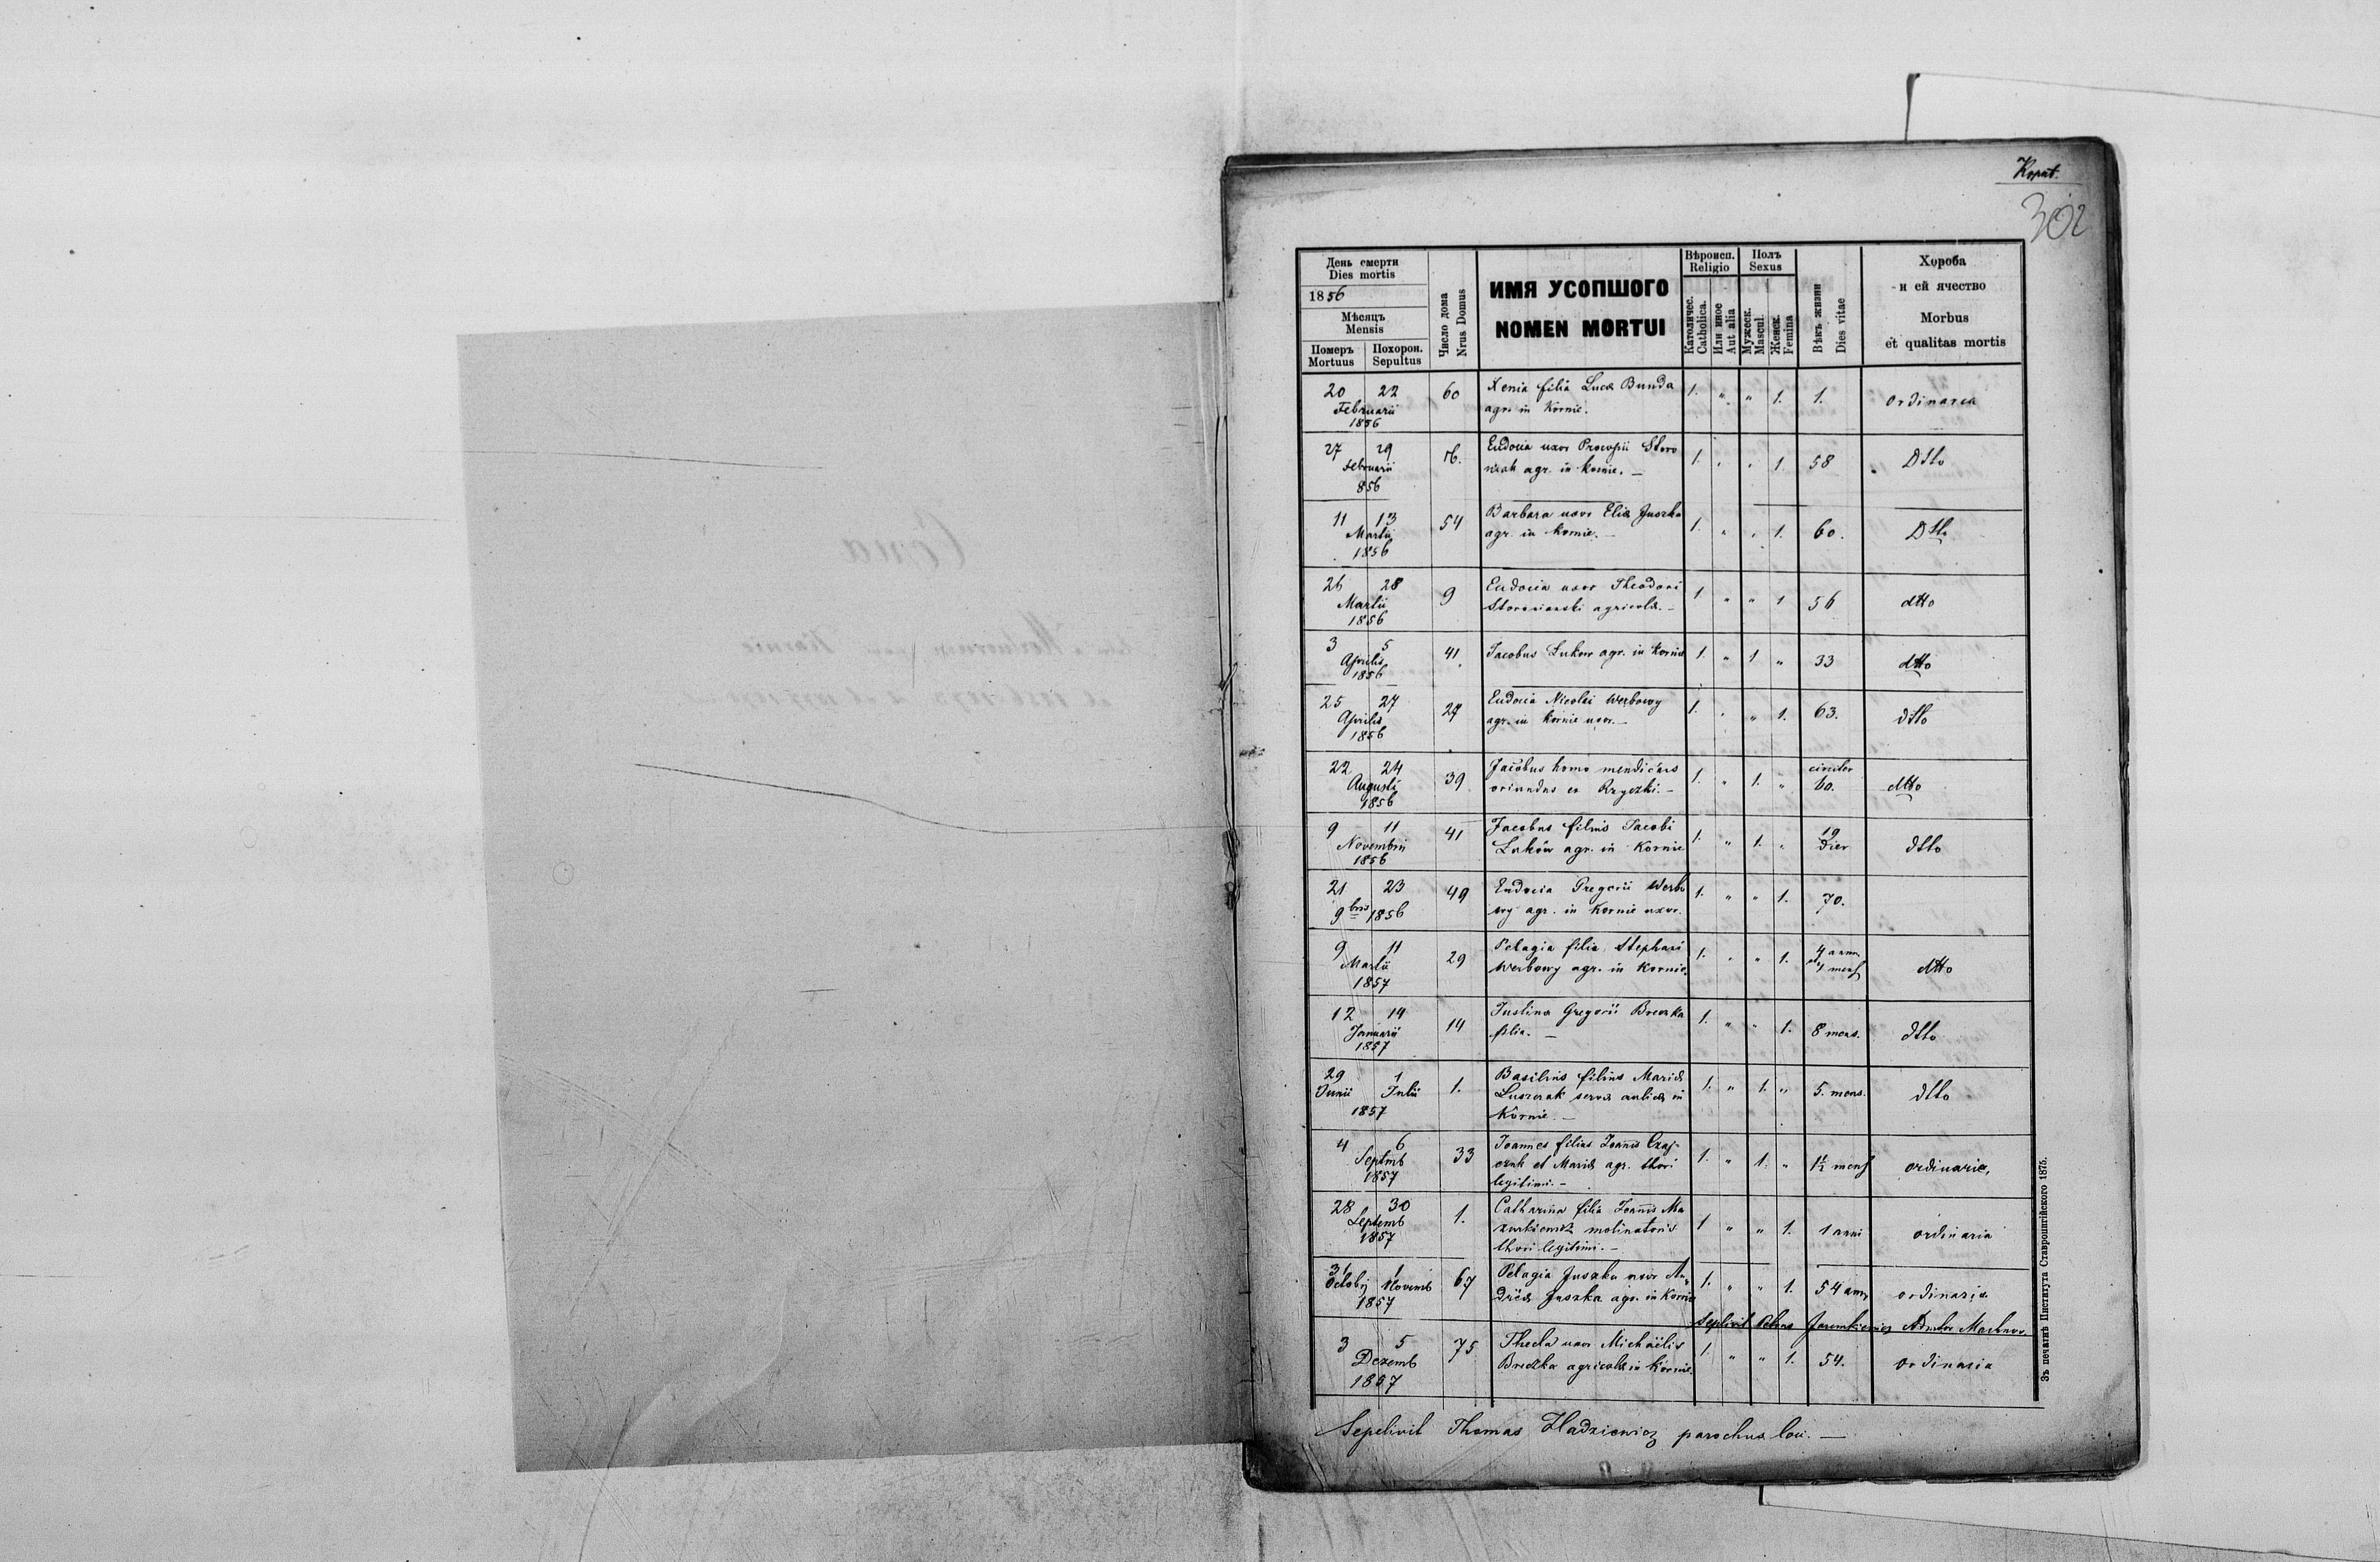 302
День смерти
Dies mortis
1856
Мѣсяцъ
Mensis
Померъ
Mortuus
Похорон.
Sepultus
Число дома
Nrus Domus
ИМЯ УСОПШОГО
NOMEN MORTUI
Вѣроисп.
Religio
Католичес.
Catholica.
Или иное
Aut alia
Полъ
Sexus
Мужеск.
Mascul.
Женск.
Femina
Вѣкъ жизни
Dies vitae
Хороба
и ей ячество
Morbus
et qualitas mortis
20 22 60 Xenia filia Lucæ Bunda 1. " " 1. 1. ordinaria
Februarii agr. in Kornie.
1856
27 29 Eudocia uxor Procopii Storo 1. " " 1 58 Dtto
Februarii agr. in Kornie. —
856
11 13 54 Barbara uxor Eliæ Juszka 1. " " 1. 60. Dtto
Martii agr. in Kornie. —
1856
26 28 9 Eudocia uxor Theodori 1 " " 1 56 dtto
Martii agricolæ. —
1856
3 5 41 Jacobus Lukow agr. in Kornie 1. " 1 " 33 dtto
Aprilis
1856
25 27 27 Eudocia Nicolai Werbowy 1. " " 1. 63. dtto
Aprilis agr. in Kornie uxor. —
1856
22 24 39 Jacobus homo mendicans 1. " 1. " circiter
Augusti oriundus ex Rzyczki. — 60. dtto
1856
9 11 41 Jacobus filius Jacobi 1. " 1. " 19
Novembris Luków agr. in Kornie dier dtto
1856
21 23 49 Eudocia Gregorii Werbo 1. " " 1. 70.
9bris 1856 wy agr. in Kornie uxor.
9 11 29 Pelagia filia Stephani 1. " " 1. 4 ann.
Martii Werbowy agr. in Kornie. et 4 mens dtto
1857
12 14 14 Justina Gregorii Breczka 1. " " 1. 8 mens. dtto
Januarii filia. —
1857
29 1 1. Basilius filius Mariæ 1. " 1. " 5. mens. dtto
Junii Julii Luszczak servæ aulicæ in
1857 Kornie. —
4 6 33 Joannes filius Joannis Czaj- 1. " 1. " 1½ mens ordinaria,
Septemb czuk et Mariæ agr. thori
1857 legitimi. —
28 30 1. Catharina filia Joannis Ma 1 " " 1. 1 anni ordinaria
Septemb zurkiewicz molinatoris
1857 thori legitimi. —
31 1 67 Pelagia Juszka uxor An 1. " " 1. 54 ann ordinaria
Octobr Novemb dreæ Juszka agr. in Kornie
1857
Sepelivit Petrus
3 5 75 Thecla uxor Michaëlis 1. " " 1. 54. ordinaria
Dezemb Breczka agricolæ in Kornie.
1857
Sepelivit Thomas Hladziewicz parochus loci. —
Зъ печатнѣ Института Ставропигійского 1875.